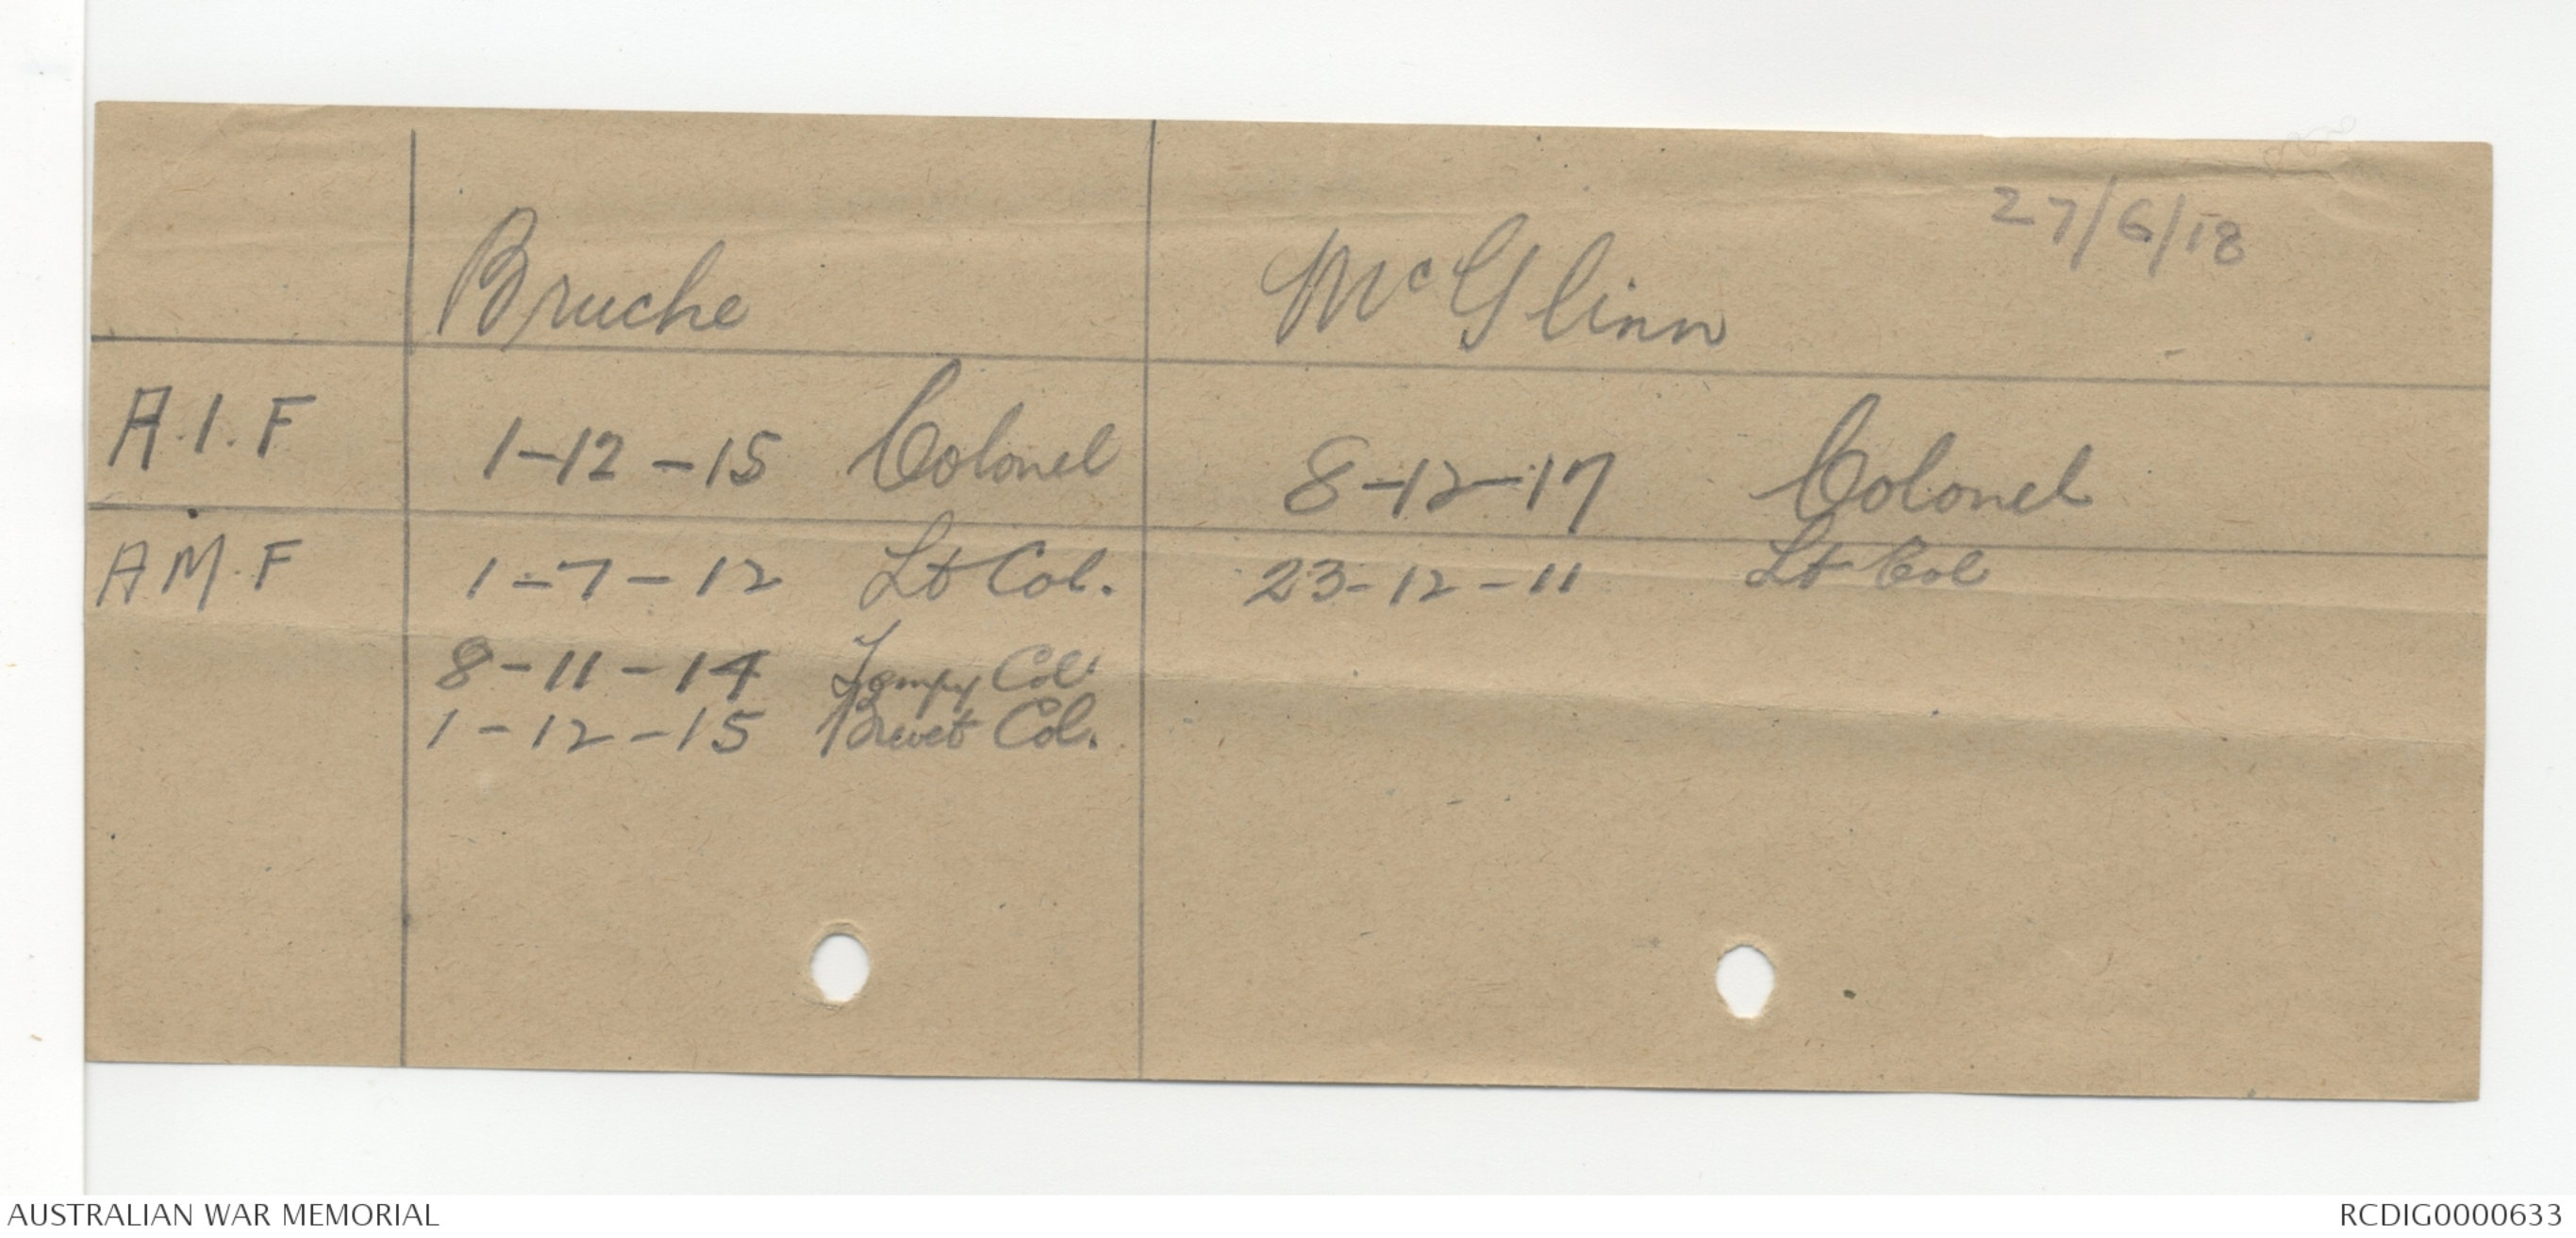 27/6/18
Bruche McGlinn
A.I.F 1-12-15 Colonel 8-12-17 Colonel
A M.F 1-7-12 Lt Col. 23-12-11 Lt Col
8-11-14 Tempy Col.
1-12-15 Brevet Col.
AUSTRALIAN WAR MEMORIAL RCDIG0000633